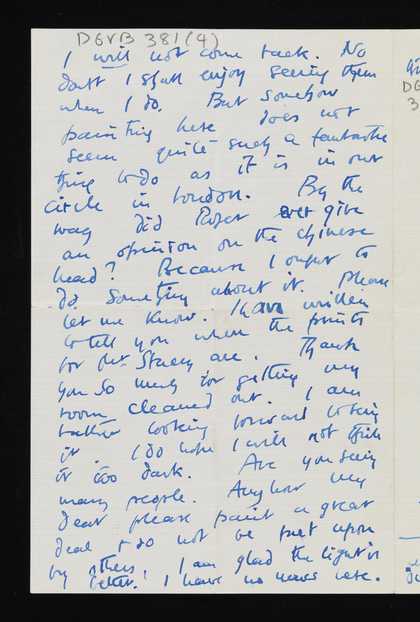 DGVB 381(4)
I will not come back. No
doubt I shall enjoy seeing them
when I do. But somehow
painting here does not
seem quite such a fantastic
thing to do as it is in our
circle in London. By the
way did Roger ever give
an opinion on the Chinese
head? Because I ought to
do something about it. Please
let me know. I have written
to tell you when the prints
for Mr Stacey are. Thank
you so much for getting my
room cleaned out. I am
rather looking forward to being
in it. I do hope I will not think
it too dark. Are you seeing
many people. Anyhow my
dear please paint a great
deal & do not be put upon
by others. I am glad the light is
better. I have no news here.